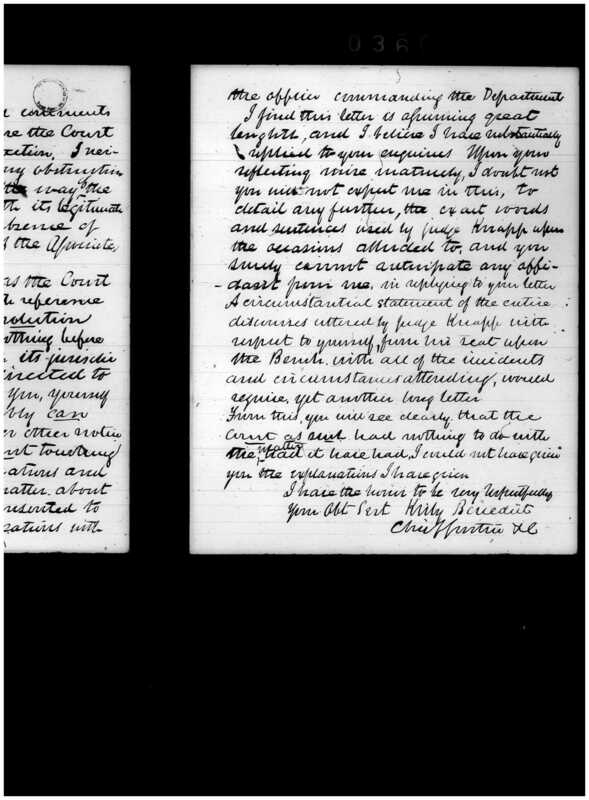 036
contments
re the Court
ection. I nei-
ny obstruction
the way the
th its legitimate
bsence of
d the Associate
as the Court
reference
solution
nothing before
its jurisdic
irected to
you, yourself
bly can
er other notice
nt touching
ations and
matter about
resented to
sations with
5
the officer commanding the Department
I find this letter is assuming great
lenghts, and I believe I have substantially
replied to your enquiries Upon your
reflecting more maturely, I doubt not
you will not expect me in this, to
detail any further, the exact words
and sentences used by Judge Knapp upon
the occasions alluded to, and you
surely cannot anticipate any affi-
-davit from me, in replying to your letter
A circumstantial statement of the entire
discourses uttered by Judge Knapp with
respect to yourself, from his seat upon
the Bench, with all of the incidents
and circumstances attending, would
require, yet another long letter
From this, you will see clearly, that the
Court as such had nothing to do with
the matter, had it have had, I could not have given
you the explanations I have given
I have the honor to be very respectfully
Your Obt Sert Kirby Benedict
Chief Justice &C